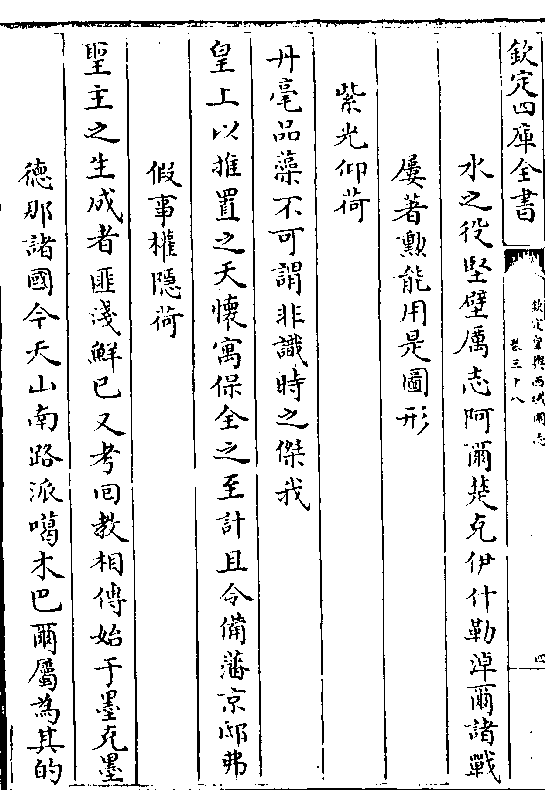 欽定四庫全書
欽定皇輿西域圖志
卷三十八
四
水之役堅壁厲志阿爾楚克伊什勒淖爾諸戰
屢著勲能用是圖形
紫光仰荷
丹毫品藻不可謂非識時之傑我
皇上以推置之天懷寓保全之至計且令備藩京邸弗
假事權隠荷
聖主之生成者匪淺鮮已又考回教相傳始于墨克墨
德那諸國今天山南路派噶木巴爾屬為其的